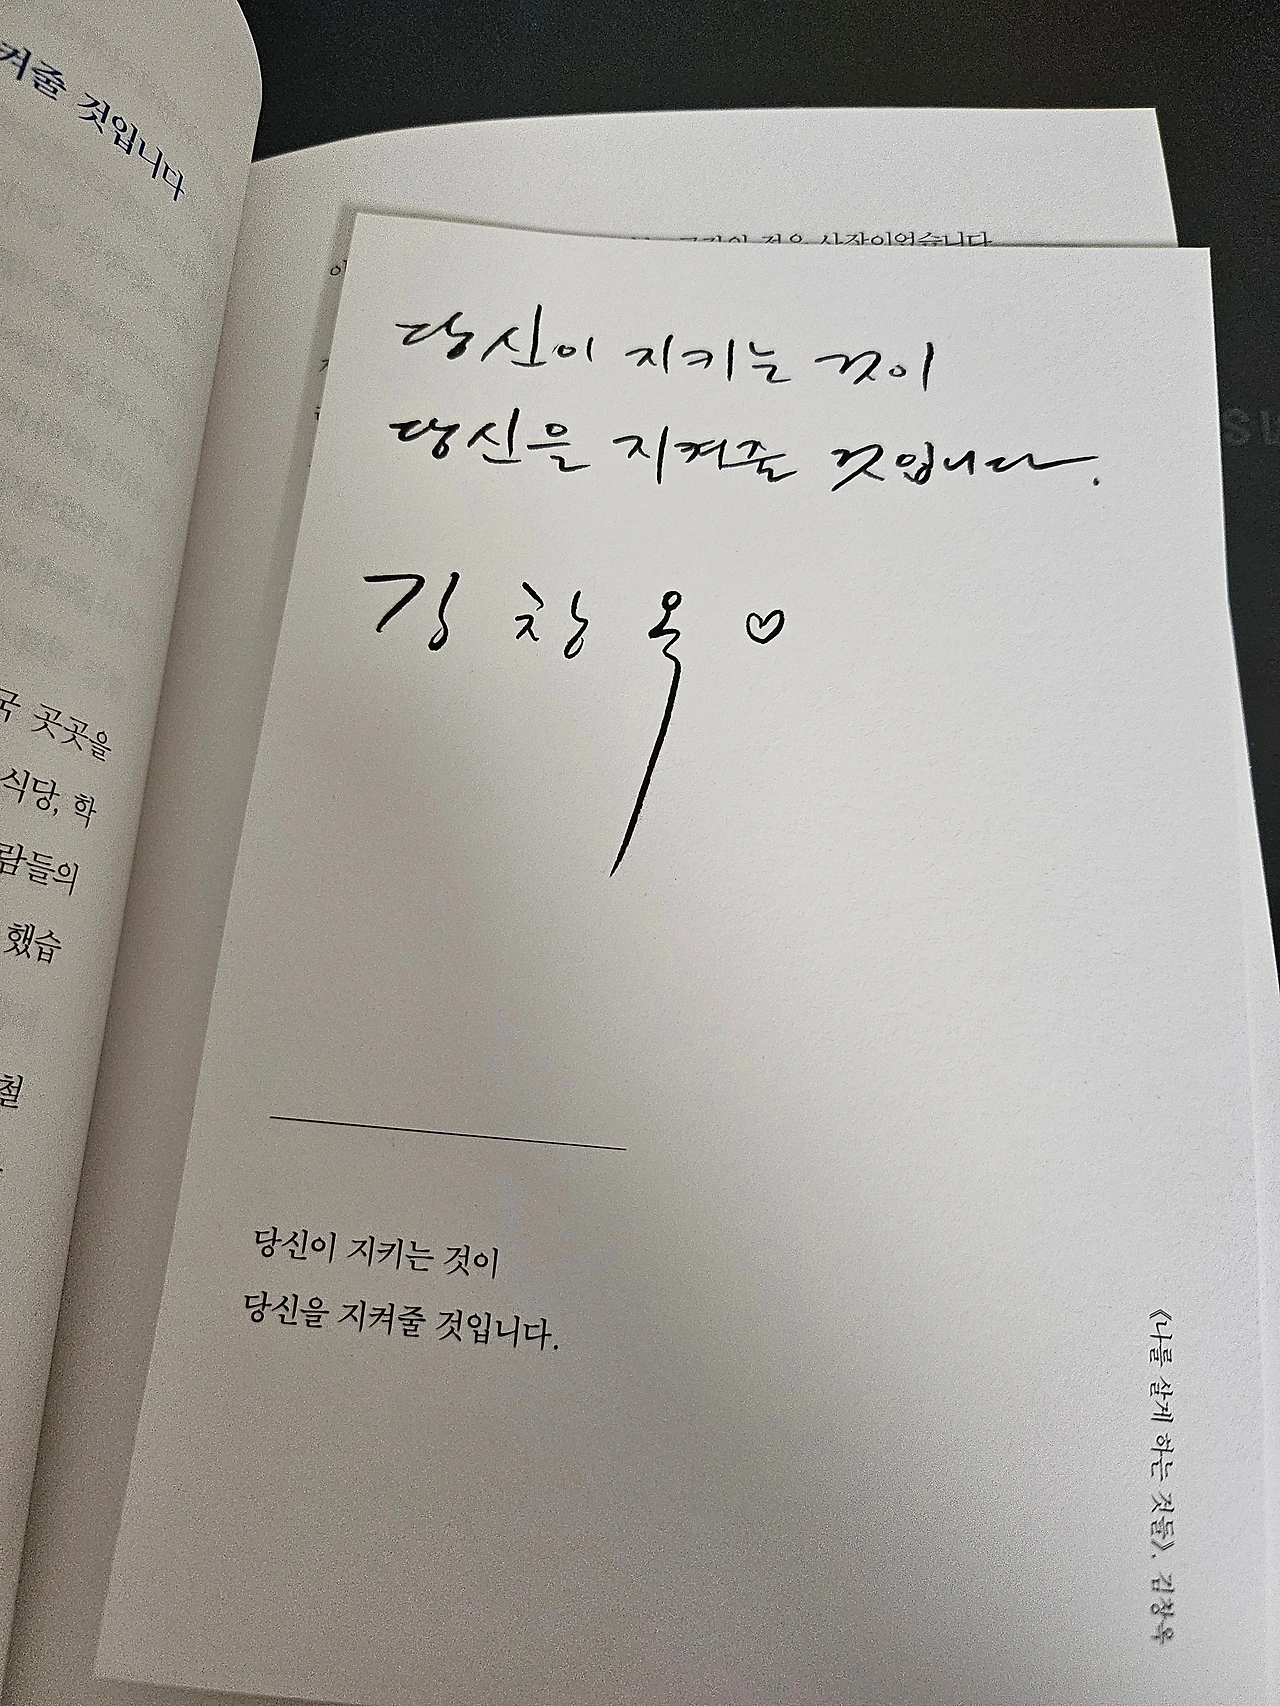 켜줄 것입니다
곳곳을
식당, 학
람들의
했습
철
것은 시작이었습니다
당신이 지키는 것이
당신을 지켜줄 것입니다.
김창옥♡
당신이 지키는 것이
당신을 지켜줄 것입니다.
《나를 살게 하는 것들》, 김창옥